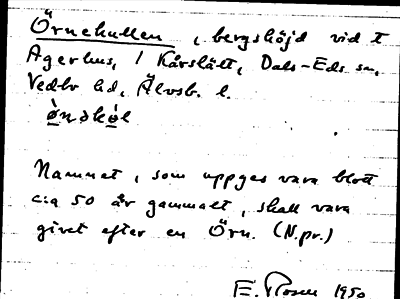 Örnekullen, bergshöjd vid t
Agerhus, 1 Kårslätt, Dals-Eds sn,
Vedbo hd, Älvsb. l.
ø̀nəkø̀l
Namnet, som uppges vara blott
c:a 50 år gammalt, skall vara
givet efter en Örn. (N.pr.)
E. Rosell 1950